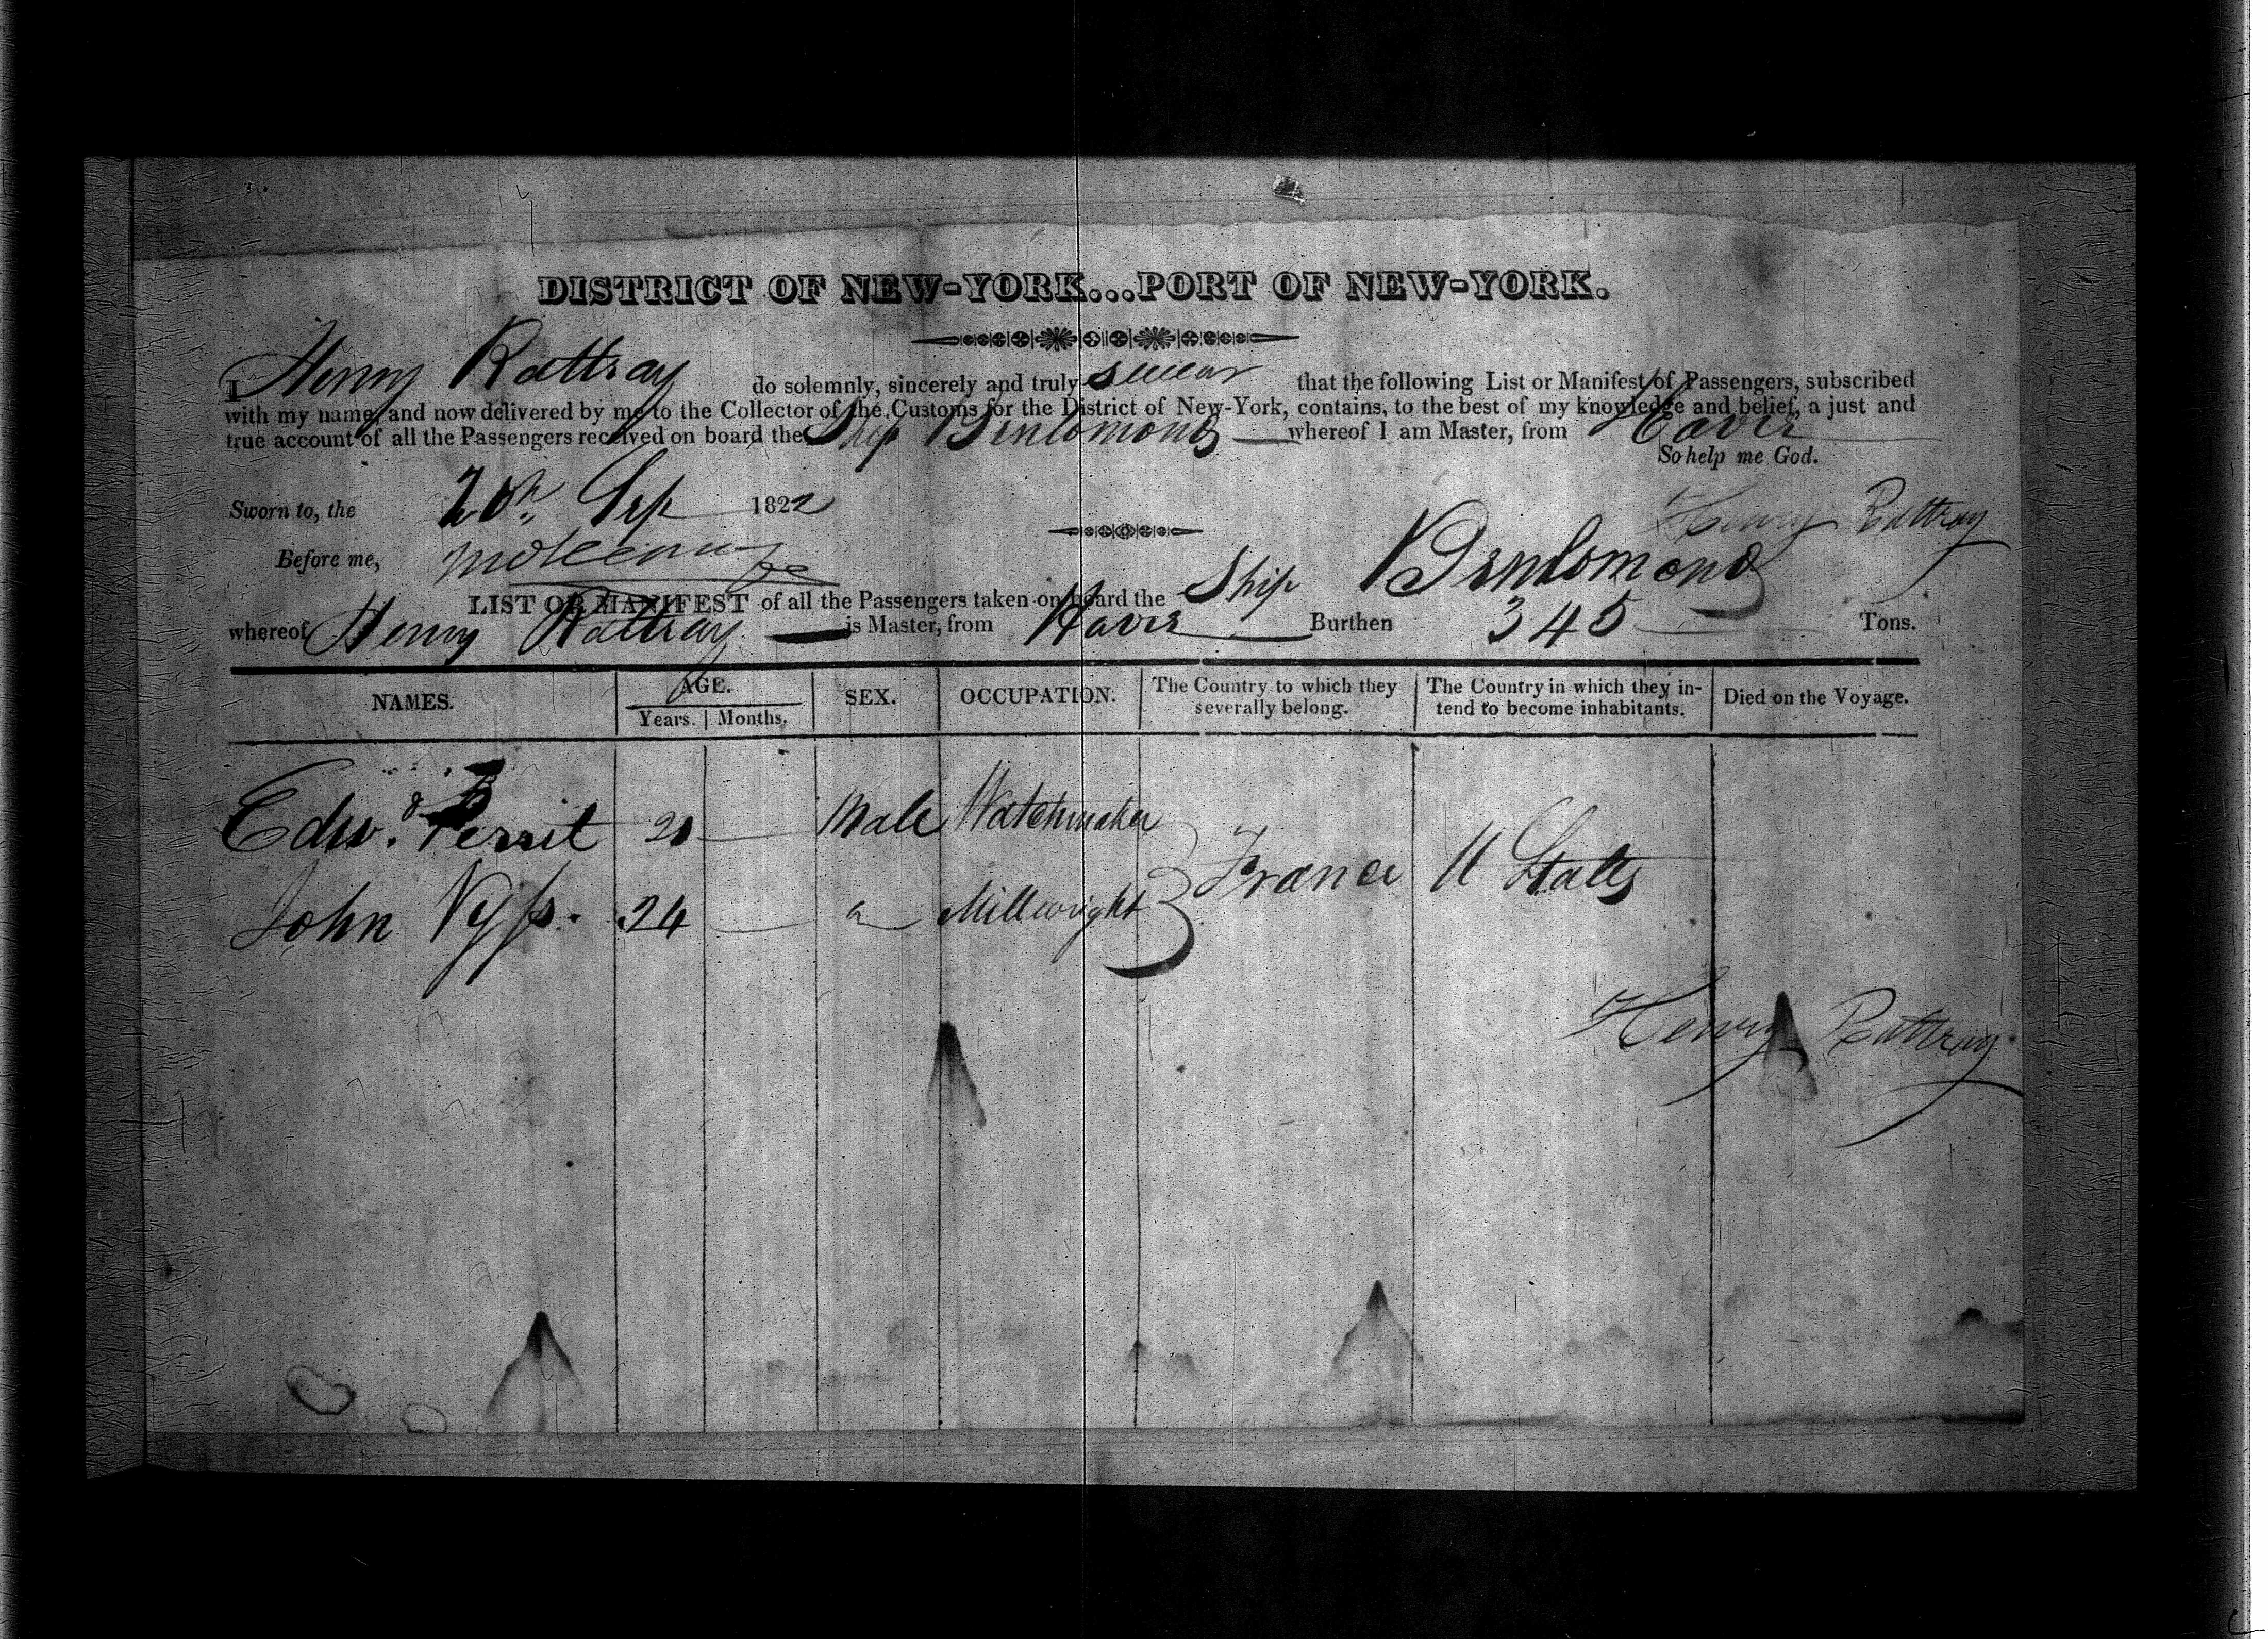 DISTRICT OF NEW-YORK...PORT OF NEW-YORK.
I Henry Rattray do solemnly, sincerely and truly swear that the following List or Manifest of Passengers, subscribed
with my name, and now delivered by me to the Collector of the Customs for the District of New-York, contains, to the best of my knowledge and belief, a just and
true account of all the Passengers received on board the Ship Benlomond whereof I am Master, from Havre
So help me God.
Sworn to, the 20th Sep 1822
Henry Rattray
Before me,
LIST OR MANIFEST of all the Passengers taken on board the Ship Benlomond
whereof Henry Rattray is Master, from Havre Burthen 345 Tons.
NAMES. AGE. Years. Months. SEX. OCCUPATION. The Country to which they severally belong. The Country in which they intend to become inhabitants. Died on the Voyage.
Edwd. Perrit Male Watchmaker
France U States
John Nyss. 24 Millwright
Henry Rattray